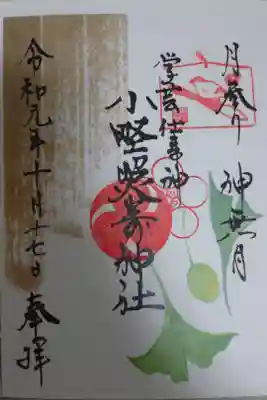 月参り 神無月
学芸仕事神
小野照嵜神社
令和元年十月十七日 奉拝